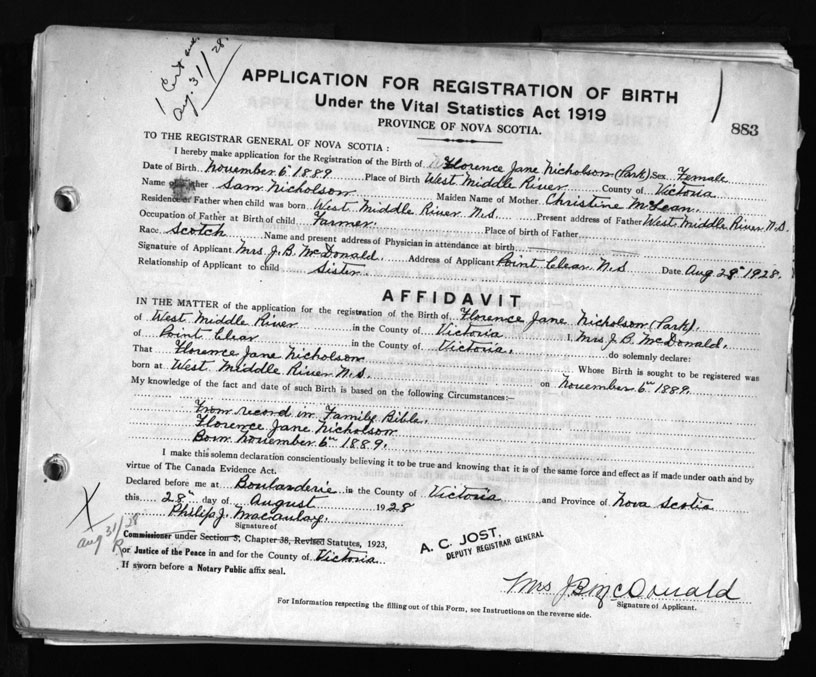 1 Cert
Aug. 31/28.
APPLICATION FOR REGISTRATION OF BIRTH
Under the Vital Statistics Act 1919
PROVINCE OF NOVA SCOTIA.
883
TO THE REGISTRAR GENERAL OF NOVA SCOTIA :
I hereby make application for the Registration of the Birth of Florence Jane Nicholson (Park) Sex Female
Date of Birth November 6th 1889 Place of Birth West Middle River County of Victoria
Name of Father Sam Nicholson Maiden Name of Mother Christine McLean.
Residence of Father when child was born West Middle River N.S. Present address of Father West Middle River N.S.
Occupation of Father at Birth of child Farmer. Place of birth of Father
Race. Scotch Name and present address of Physician in attendance at birth
Signature of Applicant Mrs. J. B. McDonald. Address of Applicant Point Clear N.S Date Aug 28th 1928.
Relationship of Applicant to child Sister.
AFFIDAVIT
IN THE MATTER of the application for the registration of the Birth of Florence Jane Nicholson (Park).
of West Middle River in the County of Victoria I, Mrs. J. B. McDonald.
of Point Clear in the County of Victoria. do solemnly declare:
That Florence Jane Nicholson Whose Birth is sought to be registered was
born at West Middle River N.S. on November 6th 1889.
My knowledge of the fact and date of such Birth is based on the following Circumstances:—
From record in Family Bible.
Florence Jane Nicholson
Born November 6th 1889.
I make this solemn declaration conscientiously believing it to be true and knowing that it is of the same force and effect as if made under oath and by
virtue of The Canada Evidence Act.
Declared before me at Boularderie in the County of Victoria and Province of Nova Scotia
this 28th day of August 1928
Philip J. Macaulay.
Signature of
Commissioner under Section 5, Chapter 38, Revised Statutes, 1923,
or Justice of the Peace in and for the County of Victoria
If sworn before a Notary Public affix seal.
X
Aug 31/28
R
A. C. JOST,
DEPUTY REGISTRAR GENERAL
Mrs J B McDonald
Signature of Applicant.
For Information respecting the filling out of this Form, see Instructions on the reverse side.